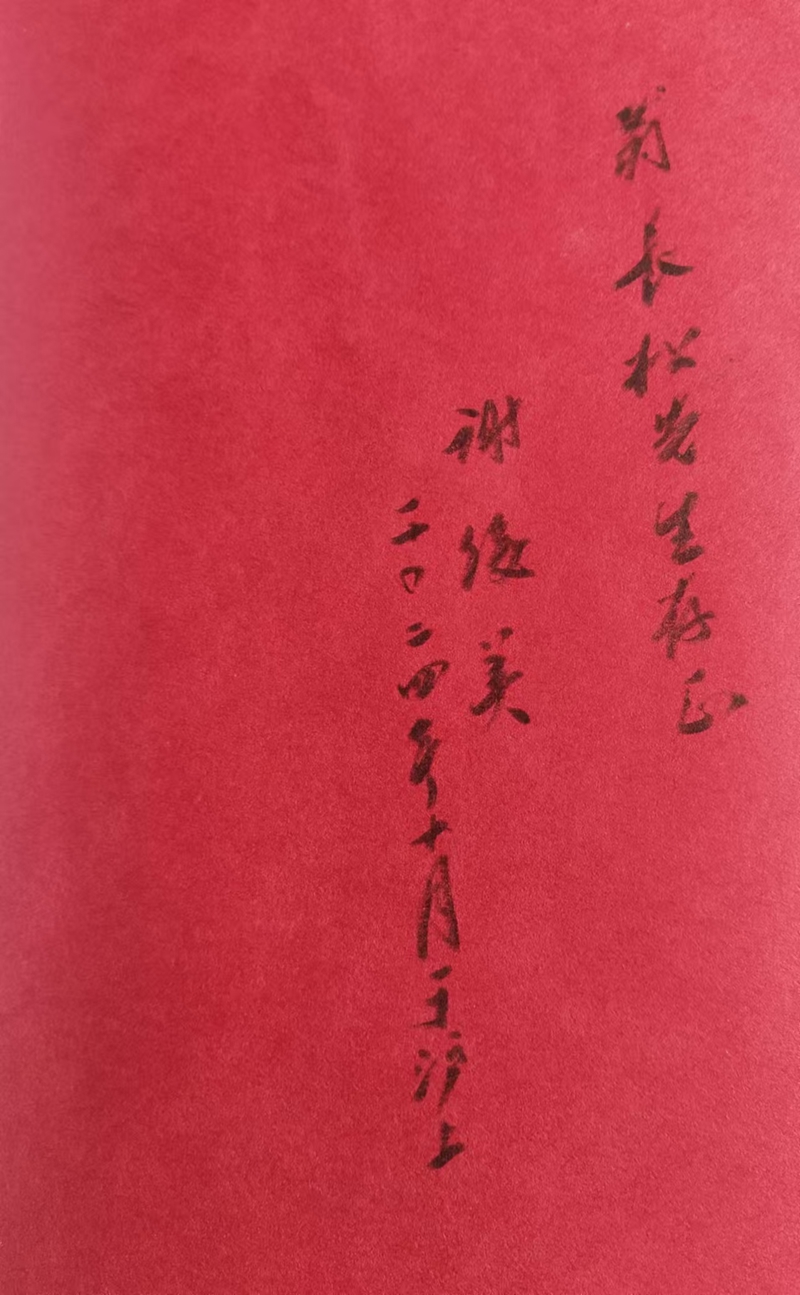 翁长松先生存正
谢俊美
二〇二四年十月于沪上